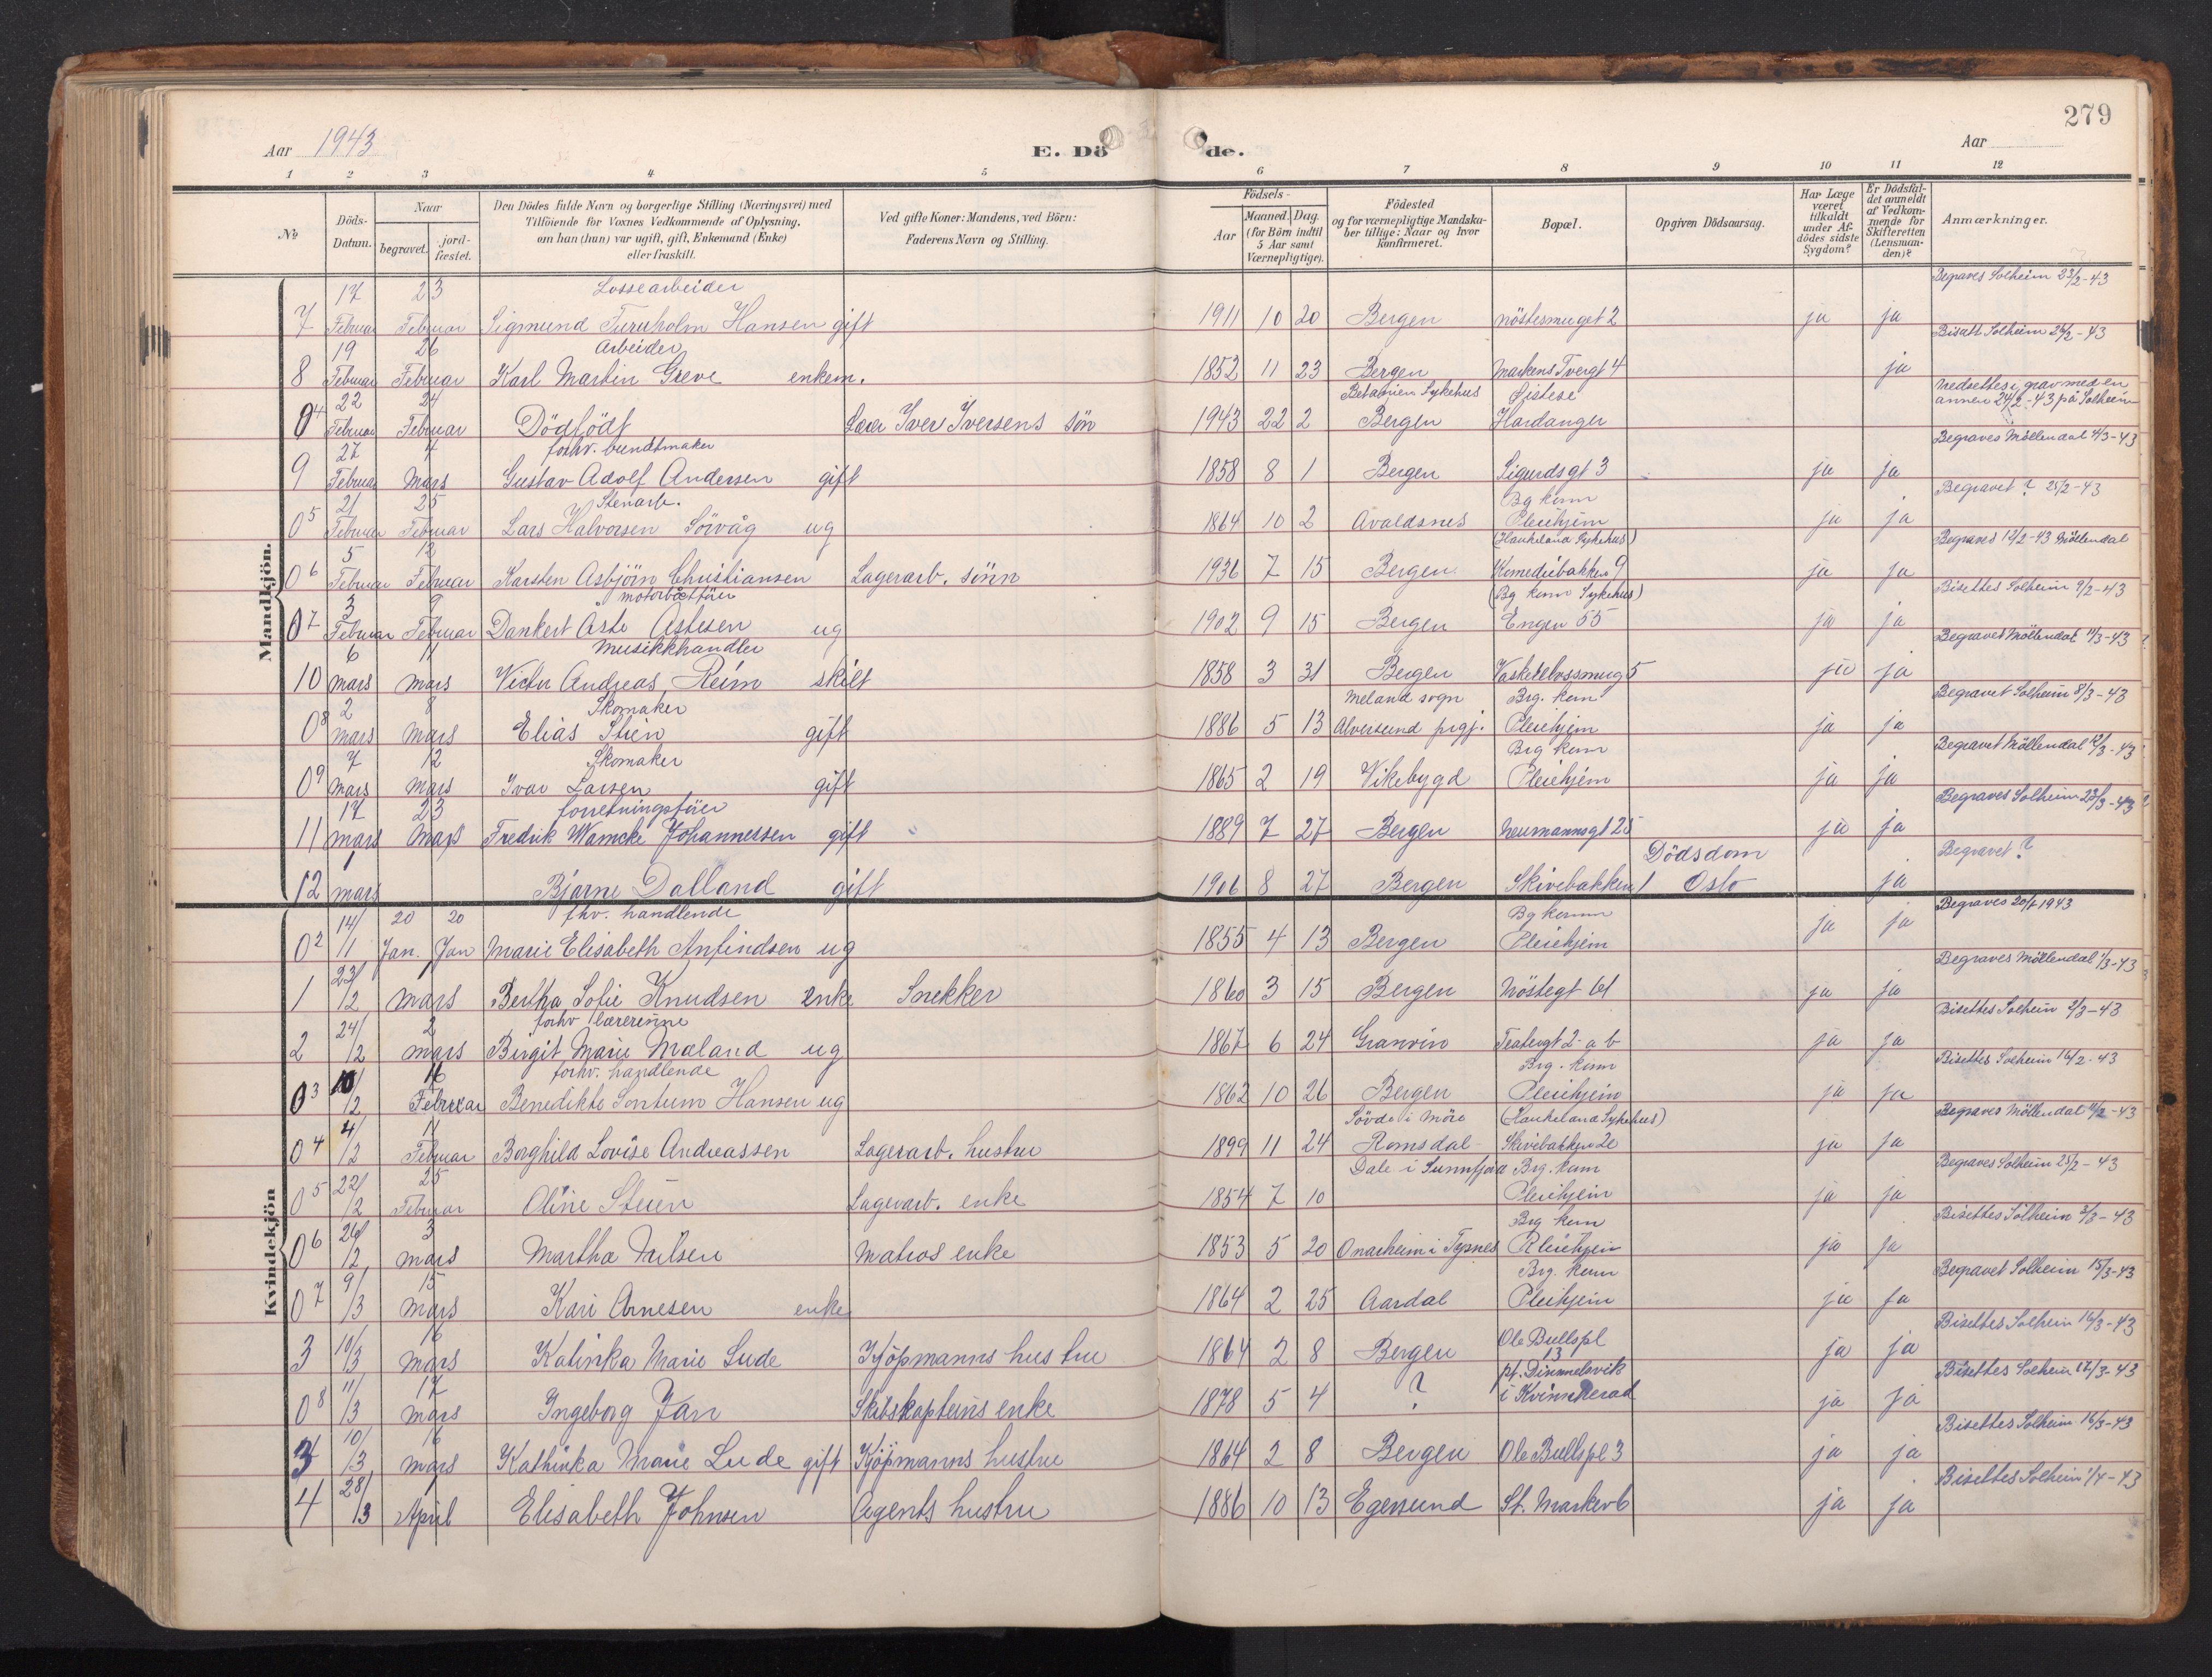 279
Aar 1943
E. Dö de.
Aar
1 2 3 4 5 6 7 8 9 10 11 12
№
Döds-Datum.
Naar
begravet.
jord-fæstet.
Den Dödes fulde Navn og borgerlige Stilling (Næringsvei) med
Tilföiende for Voxnes Vedkommende af Oplysning,
om han (hun) var ugift, gift, Enkemand (Enke)
eller fraskilt.
Ved gifte Koner: Mandens, ved Börn:
Faderens Navn og Stilling.
Födsels-
Aar
Maaned. Dag.
(for Börn indtil
5 Aar samt
Værnepligtige).
Födested
og for værnepligtige Mandska-
ber tillige: Naar og hvor
konfirmeret.
Bopæl.
Opgiven Dödsaarsag.
Har Læge
været
tilkaldt
under Af-
dödes sidste
Sygdom?
Er Dödsfal-
det anmeldt
af Vedkom-
mende for
Skifteretten
(Lensman-
den)?
Anmærkninger.
Mandkjön.
17 23 Lossearbeider Begraves Solheim 23/2-43
7 Februar Februar Sigmund Hansen gift 1911 10 20 Bergen Nöstesmuget 2 ja ja
19 26 Arbeider Bisatt Solheim 26/2-43
8 Februar Februar Karl Martin Greve enkem. 1852 11 23 Bergen Markens Tvergt 4 ja
22 24 Betanien Sykehus Øistese Nedsettes i grav med en annen 24/2-43 på Solheim
04 Februar Februar Dödfödt Iver Iversens sön 1943 22 2 Bergen Hardanger
27 4 forhv. bundtmaker Begraves Möllendal 4/3-43
9 Februar Mars Gustav Adolf Andersen gift 1858 8 1 Bergen Sigurdsgt 3 ja ja
21 25 Stenarb. Bg kom Begravet? 25/2-43
05 Februar Februar Lars Halvorsen Sörvåg ug 1864 10 2 Avaldsnes Pleiehjem ja ja
5 12 (Haukeland Sykehus) Begraves 12/2-43 Möllendal
06 Februar Februar Karsten Asbjörn Christiansen Lagerarb. sönn 1936 7 15 Bergen Komediebakken 9 ja ja
3 9 motorbåtförer (Bg kom Sykehus) Bisettes Solheim 9/2-43
07 Februar Februar Dankert Astesen ug 1902 9 15 Bergen Engen 55 ja ja
6 11 Musikkhandler Begraves Möllendal 11/3-43
10 Mars Mars Victor Andreas Reim skilt 1858 3 31 Bergen 5 ja ja
2 8 Skomaker Meland sogn Brg. kom Begravet Solheim 8/3-43
08 Mars Mars Elias Stien gift 1886 5 13 Alversund prgj. Pleiehjem ja ja
7 12 Skomaker Brg kom Begravet Möllendal 12/3-43
09 Mars Mars Ivar Larsen gift 1865 2 19 Vikebygd Pleiehjem ja ja
17 23 forretningsförer Begraves Solheim 23/3-43
11 Mars Mars Fredrik Warncke Johannessen gift 1889 7 27 Bergen Neumannsgt 25 ja ja
1 Dödsdom Begravet?
12 Mars Bjarne Dalland gift 1906 8 27 Bergen Skivebakken 1 Oslo ja
Kvindekjön
14/ 20 20 fhv. handlende Bg komm Begraves 20/1 1943
02 /1 Jan. Jan Marie Elisabeth Anfindsen ug 1855 4 13 Bergen Pleiehjem ja ja
23/ Begraves Möllendal 1/3-43
1 /2 Mars Bertha Sofie Knudsen Enke Snekker 1860 3 15 Bergen Nöstegt 61 ja ja
24/ 2 forhv lærerinne Bisettes Solheim 2/3-43
2 /2 Mars Birgit Marie Mæland ug 1867 6 24 Granvin Teatergt 2 a b ja ja
10/ 16 forhv. handlende Brg. kom Bisettes Solheim 16/2-43
03 /2 Februar Benedikte Sontum Hansen ug 1862 10 26 Bergen Pleiehjem ja ja
4/ 11 Sövde i Möre (Haukeland Sykehus) Begraves Möllendal 11/2-43
04 /2 Februar Borghild Lovise Andreassen Lagerarb. hustru 1899 11 24 Romsdal Skivebakken 2e ja ja
22/ 25 Dale i Sunnfjord Brg. kom Begraves Solheim 25/2-43
05 /2 Februar Oline Steen Lagerarb. enke 1854 7 10 Pleiehjem ja ja
26/ 3 Brg kom Bisettes Solheim 3/3-43
06 /2 Mars Martha Nilsen Matros enke 1853 5 20 Onarheim i Tysnes Pleiehjem ja ja
9/ 15 Brg. kom Begravet Solheim 15/3-43
07 /3 Mars Kari Arnesen enke 1864 2 25 Aardal Pleiehjem ja ja
10/ 16 Ole Bullspl Bisettes Solheim 16/3-43
3 /3 Mars Katinka Marie Lude Kjöpmanns hustru 1864 2 8 Bergen 13 ja ja
11/ 17 pt. Dimmelsvik Bisettes Solheim 17/3-43
08 /3 Mars Ingeborg Jan Skibskapteins enke 1878 5 4 ? i Kvinnherad ja ja
10/ 16 Bisettes Solheim 16/3-43
3 /3 Mars Kathinka Marie Lude gift Kjöpmanns hustru 1864 2 8 Bergen Ole Bullspl 3 ja ja
28/ Bisettes Solheim 1/4-43
4 /3 April Elisabeth Johnsen Agents hustru 1886 10 13 Egersund St. Markev 6 ja ja